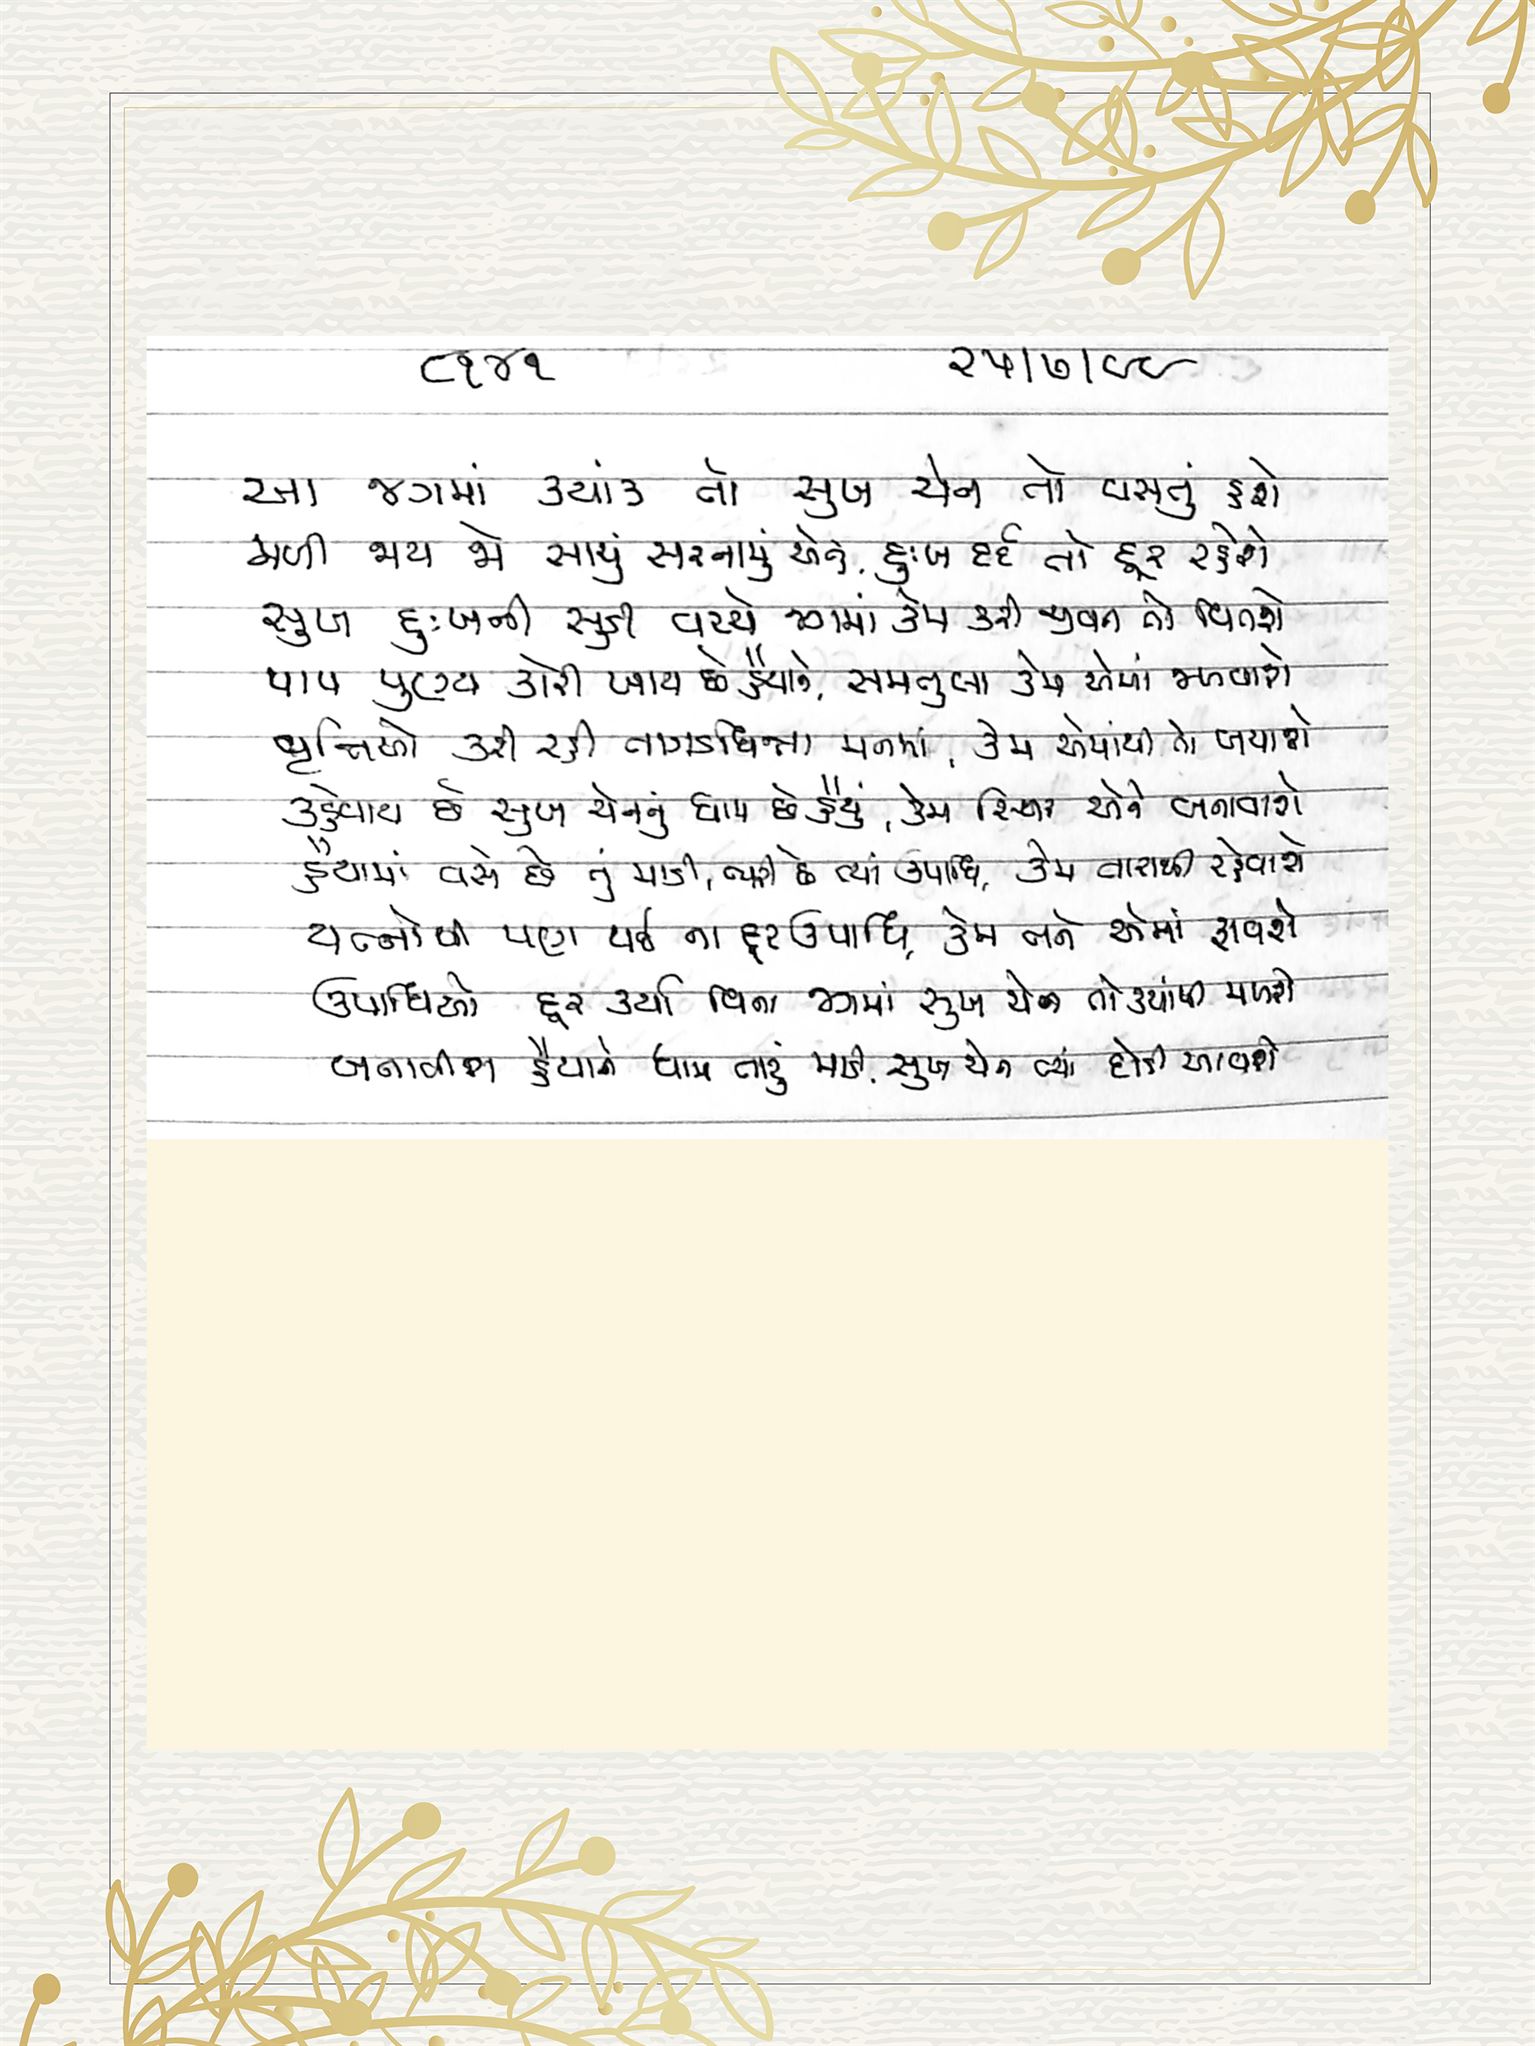 ૮૧૪૧ ૨૫/૭/૯૯
આ જગમાં ક્યાંક તો સુખ ચેન તો વસતું હશે
મળી જાય જો સાચું સરનામું એનું, દુઃખ દર્દ તો દૂર રહેશે
સુખ દુઃખની સુડી વચ્ચે જગમાં કેમ કરી જીવન તો વિતશે
પાપ પુણ્ય કોરી ખાય છે હૈયાને, સમતુલા કેમ એમાં જળવાશે
વૃત્તિઓ કરી રહી તાગડધિન્ના મનમાં, કેમ એમાંથી તો બચાશે
કહેવાય છે સુખ ચેનનું ધામ છે હૈયું, કેમ સ્થિર એને બનાવાશે
હૈયામાં વસે છે તું માડી, જાગી છે ત્યાં ઉપાધિ, કેમ તારાથી રહેવાશે
યત્નોથી પણ થઈ ના દૂર ઉપાધિ, કેમ તને એમાં ફાવશે
ઉપાધિઓ દૂર કર્યા વિના જગમાં સુખ ચેન તો ક્યાંથી મળશે
બનાવીશ હૈયાને ધામ તારું માડી, સુખ ચેન ત્યાં દોડી આવશે